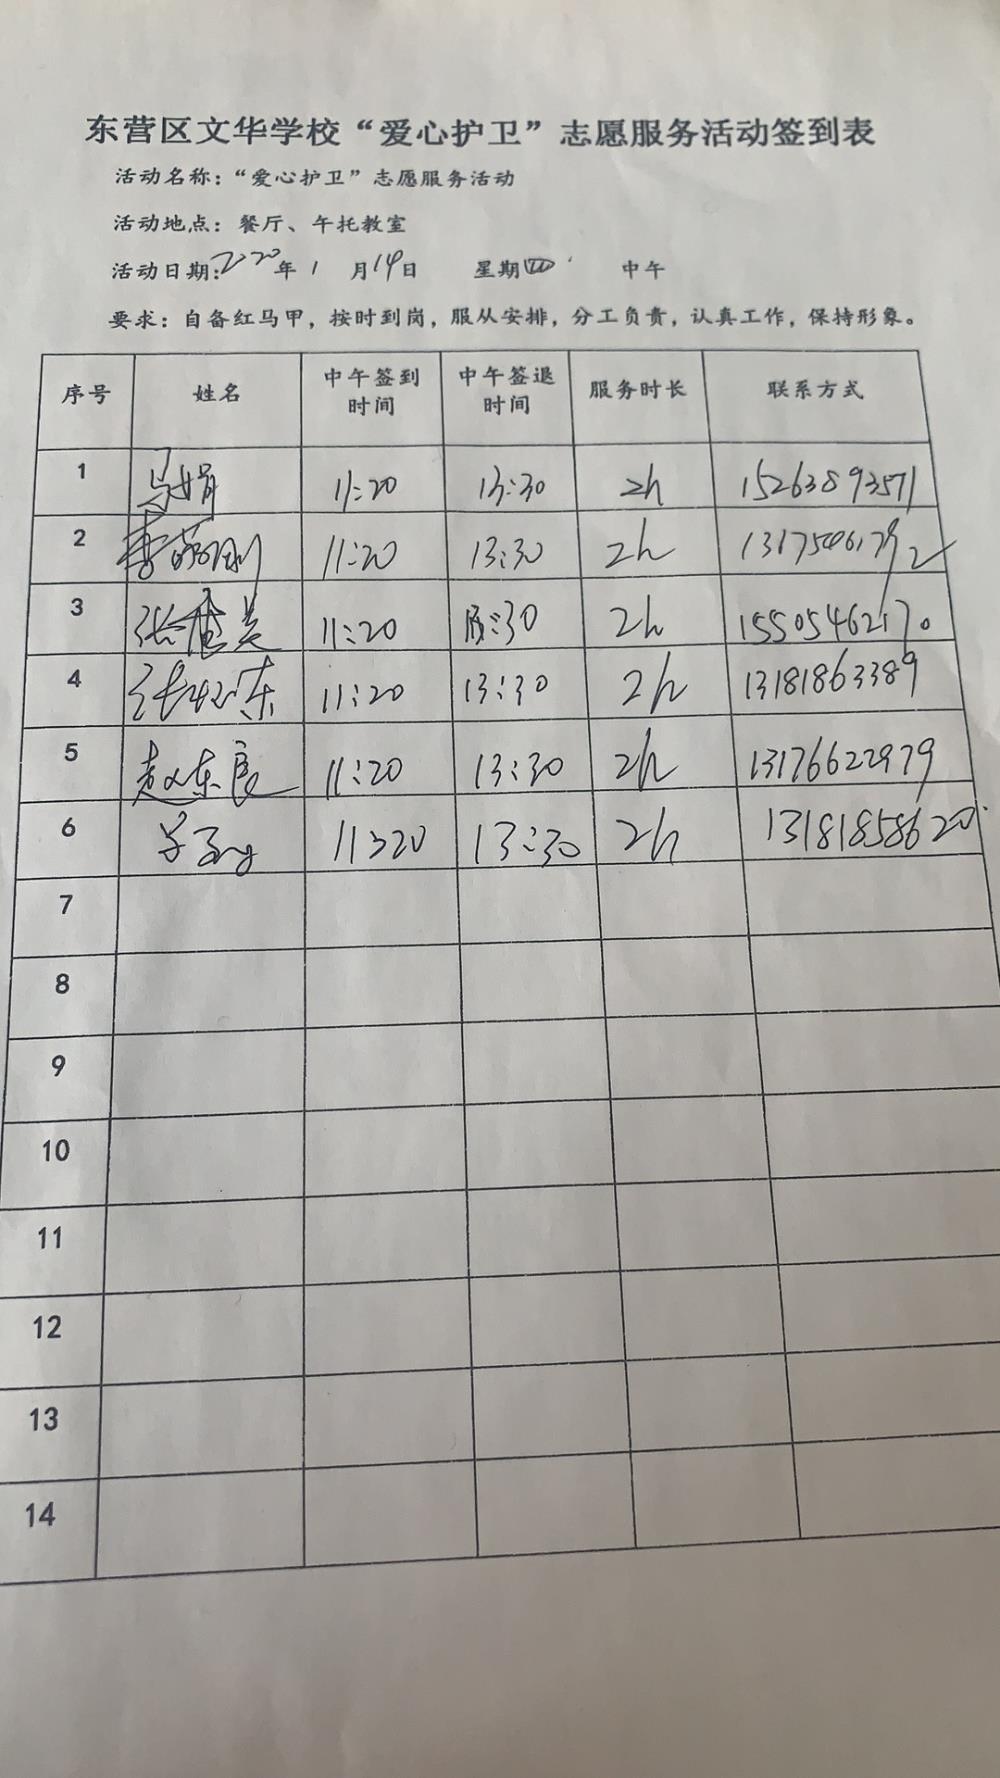 东营区文华学校“爱心护卫”志愿服务活动签到表
活动名称：“爱心护卫”志愿服务活动
活动地点：餐厅、午托教室
活动日期：2020年1月14日 星期四 中午
要求：自备红马甲，按时到岗，服从安排，分工负责，认真工作，保持形象。
序号 姓名 中午签到时间 中午签退时间 服务时长 联系方式
1 马娟 11:20 13:30 2h 15263893571
2 11:20 13:30 2h
3 11:20 13:30 2h 15505462170
4 11:20 13:30 2h 13181863389
5 赵东良 11:20 13:30 2h 13176622979
6 11:20 13:30 2h 13181858620
7
8
9
10
11
12
13
14